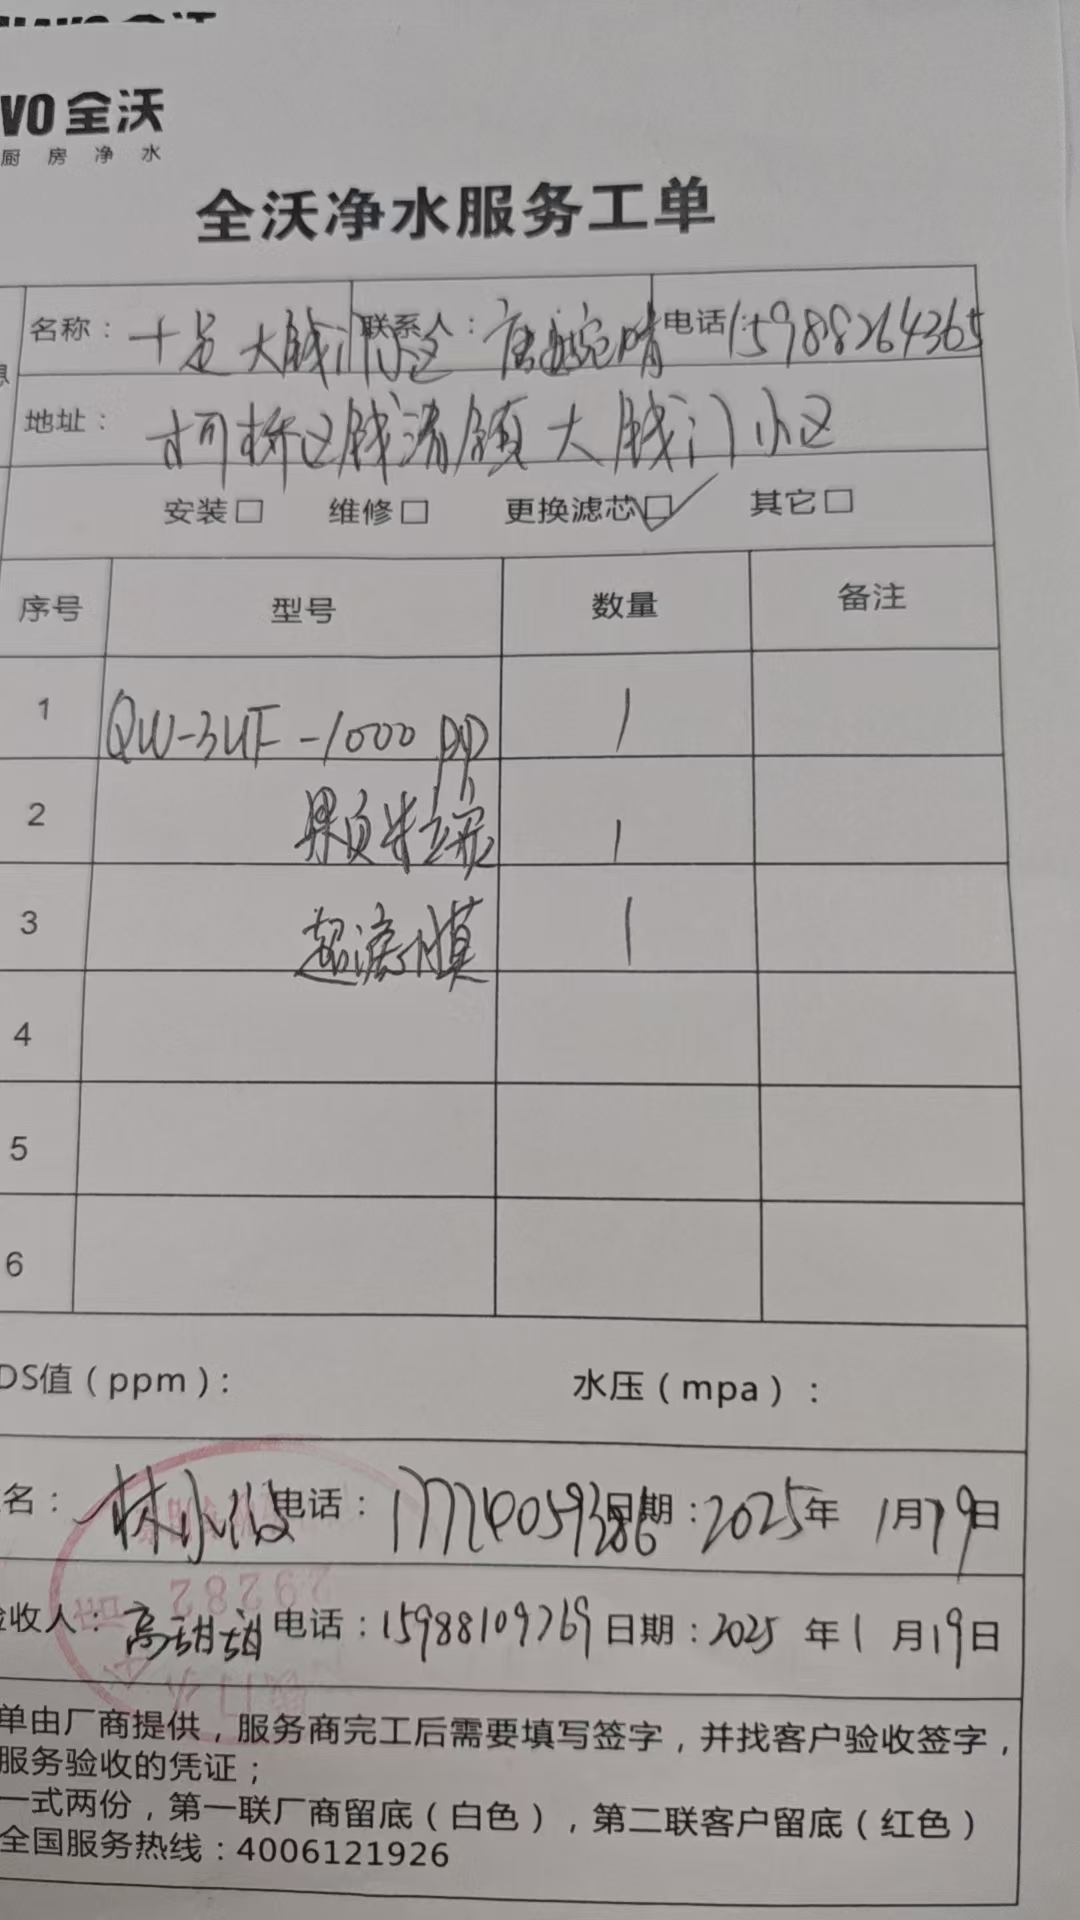 VO全沃
厨房净水
全沃净水服务工单
名称：十足大钱门小区 联系人：唐婉晴 电话：15988264365
地址：柯桥区钱清镇大钱门小区
安装□ 维修□ 更换滤芯☑ 其它□
序号 型号 数量 备注
1 QW-3UF-1000 PP 1
2 颗粒碳 1
3 超滤膜 1
4
5
6
DS值（ppm）： 水压（mpa）：
名：林 电话：17740059386 日期：2025年1月19日
收人：高甜甜 电话：15988109769 日期：2025年1月19日
29282
单由厂商提供，服务商完工后需要填写签字，并找客户验收签字，
服务验收的凭证；
一式两份，第一联厂商留底（白色），第二联客户留底（红色）
全国服务热线：4006121926